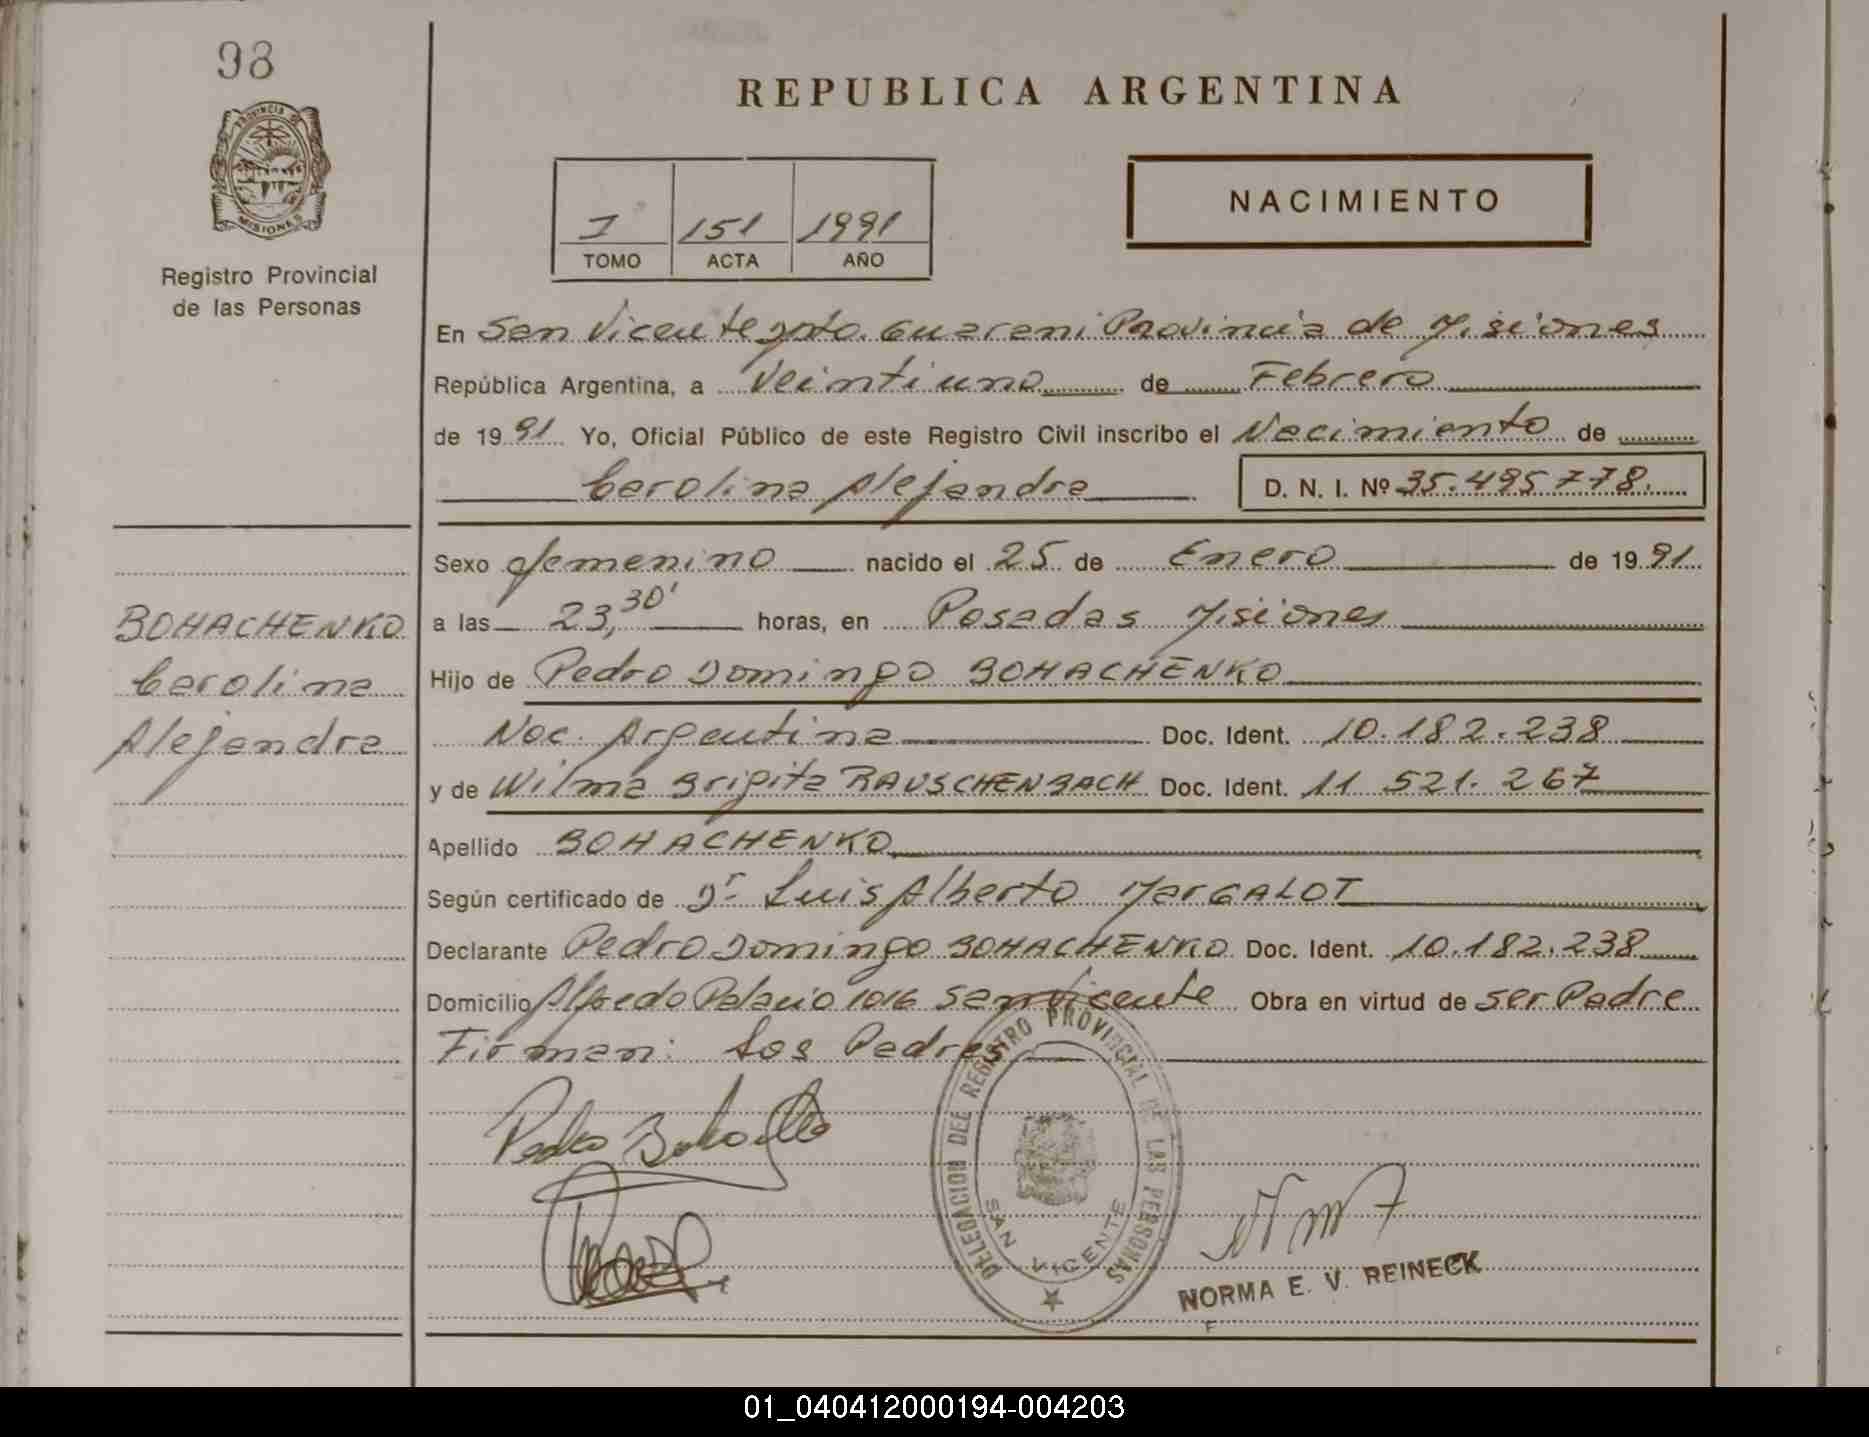 98
REPUBLICA ARGENTINA
PROVINCIA DE
MISIONES
Registro Provincial
de las Personas
I 151 1991
TOMO ACTA AÑO
NACIMIENTO
En San Vicente Dpto. Guarani Provincia de Misiones
República Argentina, a Veintiuno de Febrero
de 1991 Yo, Oficial Público de este Registro Civil inscribo el Nacimiento de
Carolina Alejandra D. N. I. Nº 35.495778.
Sexo femenino nacido el 25 de Enero de 1991
a las 23,30' horas, en Posadas Misiones
Hijo de Pedro Domingo BOHACHENKO
Nac. Argentina Doc. Ident. 10.182.238
y de Wilma Brigita RAUSCHENBACH Doc. Ident. 11 521. 267
Apellido BOHACHENKO
Según certificado de Dr. Luis Alberto MarGALOT
Declarante Pedro Domingo BOHACHENKO Doc. Ident. 10.182.238
Domicilio Alfredo Palacio 1016 San Vicente Obra en virtud de ser Padre
Firman: Los Padres
BOHACHENKO
Carolina
Alejandra
Pedro
DELEGACION DEL REGISTRO PROVINCIAL DE LAS PERSONAS
SAN VICENTE
NORMA E. V. REINECK
01_040412000194-004203